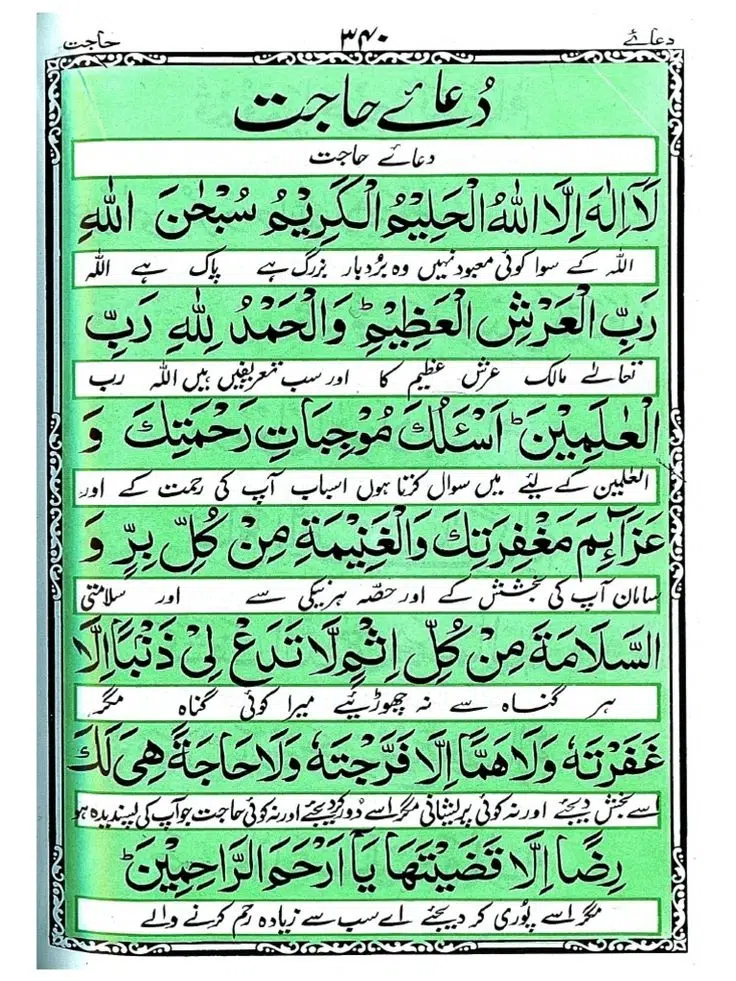 دعائے ۳۴۰ حاجت
دُعائے حاجت
دعائے حاجت
لَآ اِلٰهَ اِلَّا اللّٰهُ الْحَلِيْمُ الْكَرِيْمُ سُبْحٰنَ اللّٰهِ
اللہ کے سوا کوئی معبود نہیں وہ بُردبار بزرگ ہے پاک ہے اللہ
رَبِّ الْعَرْشِ الْعَظِيْمِ ؕ وَالْحَمْدُ لِلّٰهِ رَبِّ
تعالےٰ مالک عرش عظیم کا اور سب تعریفیں ہیں اللہ رب
الْعٰلَمِيْنَ ؕ اَسْئَلُكَ مُوْجِبَاتِ رَحْمَتِكَ وَ
العٰلمین کے لیئے میں سوال کرتا ہوں اسباب آپ کی رحمت کے اور
عَزَآئِمَ مَغْفِرَتِكَ وَالْغَنِيْمَةَ مِنْ كُلِّ بِرٍّ وَ
سامان آپ کی بخشش کے اور حصّہ ہر نیکی سے اور سلامتی
السَّلَامَةَ مِنْ كُلِّ اِثْمٍ لَّا تَدَعْ لِيْ ذَنْبًا اِلَّا
ہر گناہ سے نہ چھوڑیئے میرا کوئی گناہ مگر
غَفَرْتَهٗ وَلَا هَمًّا اِلَّا فَرَّجْتَهٗ وَلَا حَاجَةً هِيَ لَكَ
اسے بخش دیجئے اور نہ کوئی پریشانی مگر اسے دور کر دیجئے اور نہ کوئی حاجت جو آپ کی پسندیدہ ہو
رِضًا اِلَّا قَضَيْتَهَا يَآ اَرْحَمَ الرَّاحِمِيْنَ ؕ
مگر اسے پوری کر دیجئے اے سب سے زیادہ رحم کرنے والے